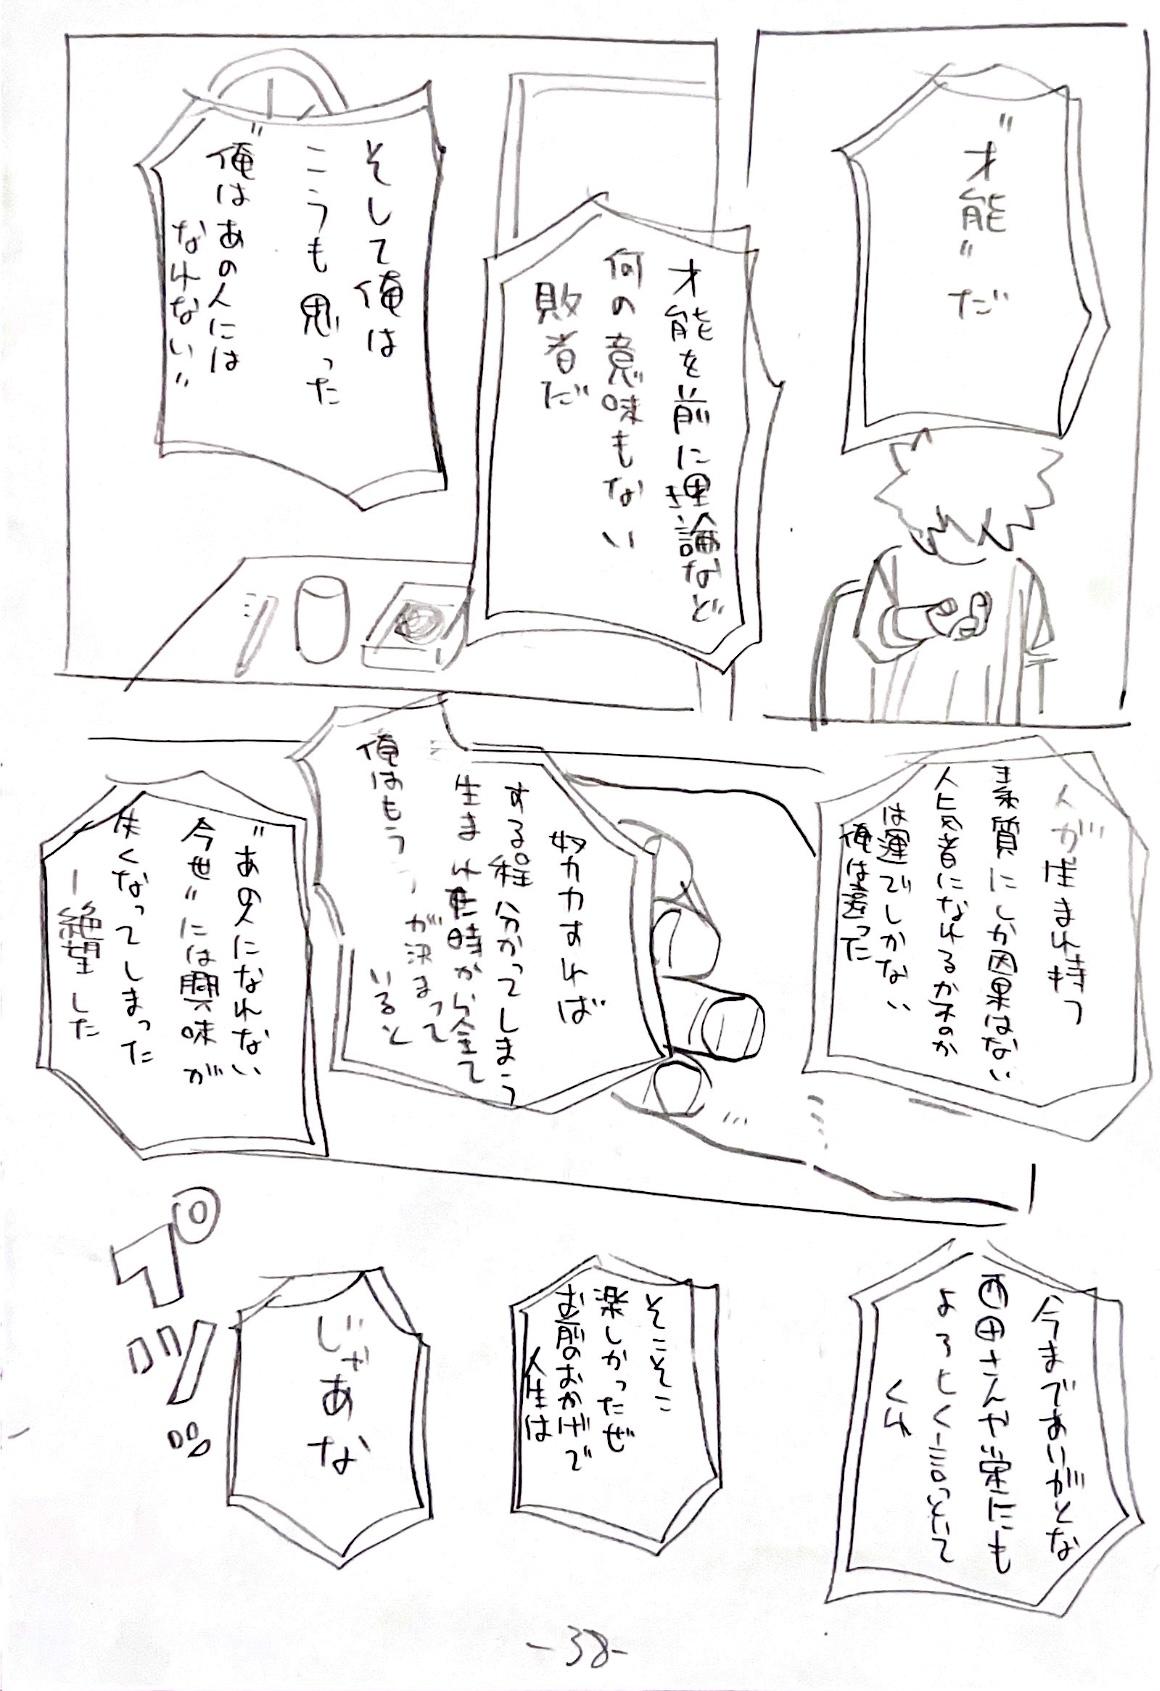 "才能"だ
才能を前に理論など
何の意味もない
敗者だ
そして俺は
こうも思った
"俺はあの人には
なれない"
人が生まれ持つ
素質にしか因果はない
人気者になれるか否か
は運でしかない
俺は違った
努力すれば
する程分かってしまう
生まれた時から全て
俺はもう
が決まって
いると
"あの人になれない
今世"には興味が
失くなってしまった
―絶望した
今まであいがとな
西田さんや栄にも
よろしく言っといて
くれ
そこそこ
楽しかったぜ
お前のおかげで
人生は
じゃあな
プツッ
-38-